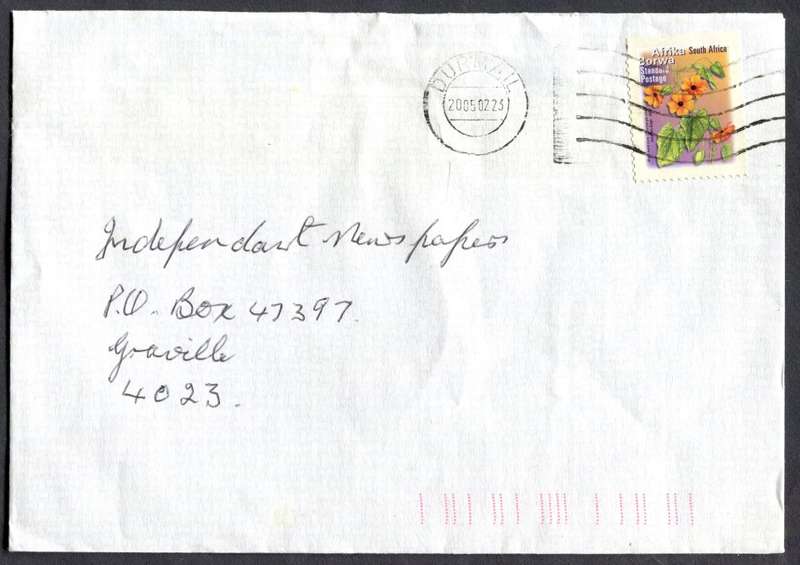 DURMAIL
20050223
Afrika South Africa
Borwa
Standard
Postage
Independant Newspapers
P.O. Box 47397.
Graville
4023.